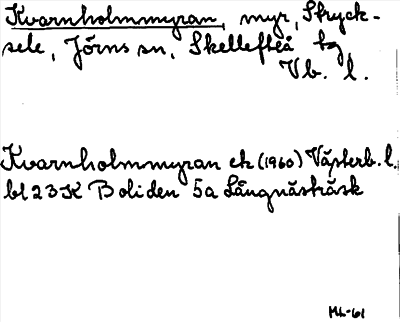 Kvarnholmmyran, myr, Stryck-
sele, Jörns sn, Skellefteå tg
Vb. l.
Kvarnholmmyran ek (1960) Västerb. l.
bl 23 K Boliden 5a Långnästräsk
ML-61